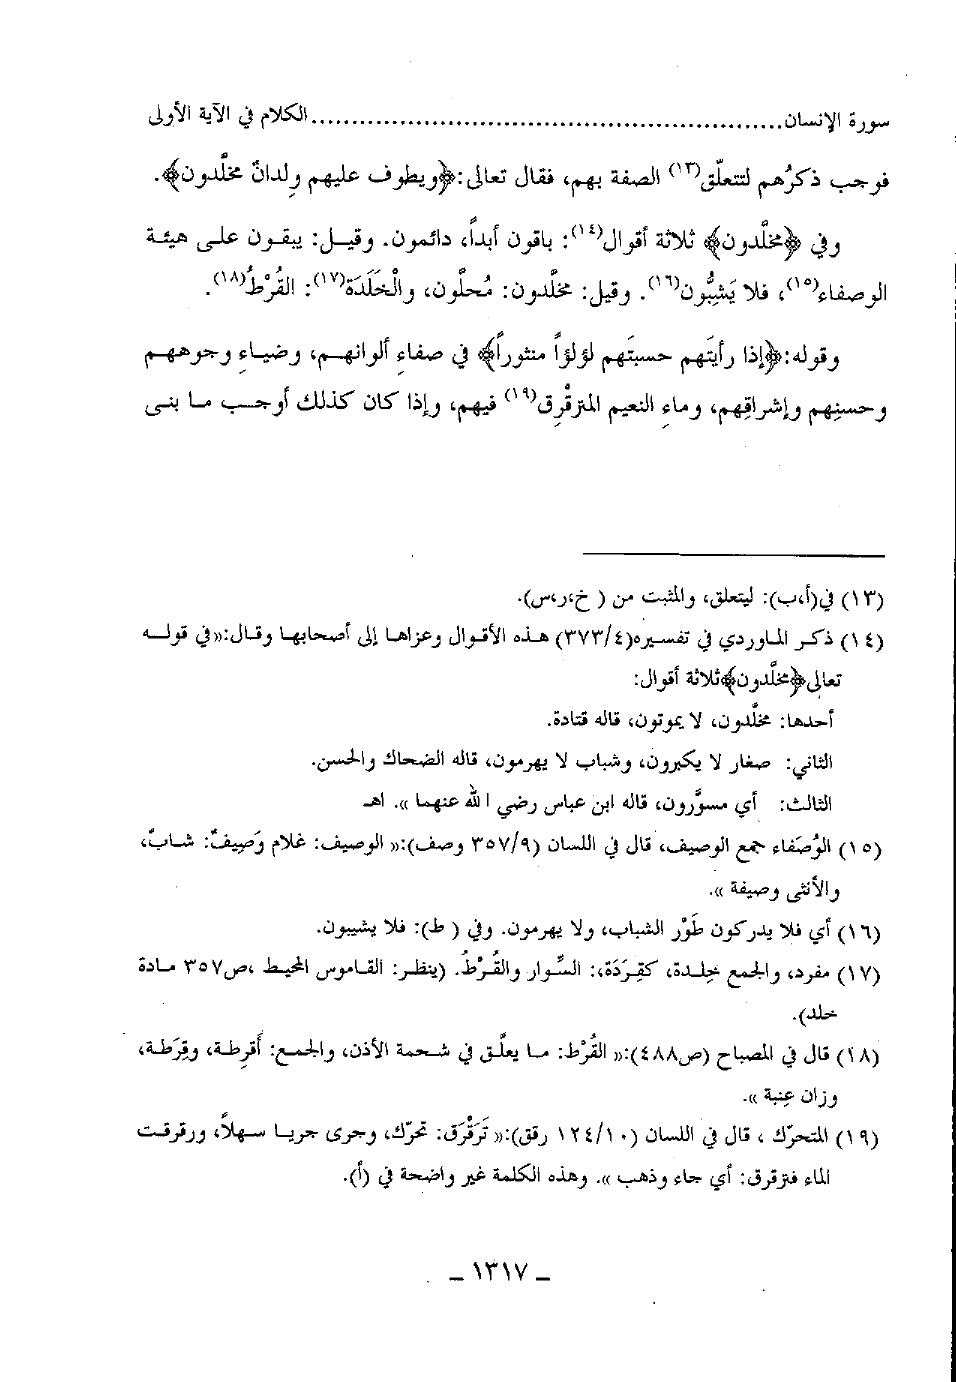 سورة الإنسان..........................................................الكلام في الآية الأولى
فوجب ذكرُهم لتتعلّق(١٣) الصفة بهم، فقال تعالى:﴿ويطوف عليهم وِلدانٌ مخلَّدون﴾.
وفي ﴿مخلَّدون﴾ ثلاثة أقوال(١٤): باقون أبداً، دائمون. وقيل: يبقون على هيئة
الوصفاء(١٥)، فلا يَشِبُّون(١٦). وقيل: مخلَّدون: مُحلَّون، والْخَلَدَة(١٧): القُرْطُ(١٨).
وقوله:﴿إذا رأيتَهم حسبتَهم لؤلؤاً منثوراً﴾ في صفاءِ ألوانهم، وضياءِ وجوههم
وحسنِهم وإشراقِهم، وماءِ النعيم المترقْرِق(١٩) فيهم، وإذا كان كذلك أوجب ما بنى
(١٣) في(أ،ب): ليتعلق، والمثبت من ( خ،ر،س).
(١٤) ذكر الماوردي في تفسيره(٣٧٣/٤) هذه الأقوال وعزاها إلى أصحابها وقال:« في قوله
تعالى﴿مخلَّدون﴾ثلاثة أقوال:
أحدها: مخلَّدون، لا يموتون، قاله قتادة.
الثاني: صغار لا يكبرون، وشباب لا يهرمون، قاله الضحاك والحسن.
الثالث: أي مسوَّرون، قاله ابن عباس رضي الله عنهما ». اهـ
(١٥) الوُصَفاء جمع الوصيف، قال في اللسان (٣٥٧/٩ وصف):« الوصيف: غلام وَصِيفٌ: شابٌ،
والأنثى وصيفة ».
(١٦) أي فلا يدركون طَوْر الشباب، ولا يهرمون. وفي ( ط): فلا يشيبون.
(١٧) مفرد، والجمع خِلدة، كقِرَدَة،: السِّوار والقُرْطُ. (ينظر: القاموس المحيط ،ص٣٥٧ مادة
خلد).
(١٨) قال في المصباح (ص٤٨٨):« القُرْط: ما يعلَّق في شحمة الأذن، والجمع: أَقرِطة، وقِرَطة،
وزان عِنبة ».
(١٩) المتحرّك ، قال في اللسان (١٢٤/١٠ رقق):« تَرَقْرَق: تحرّك، وجرى جريا سهلاً، ورقرقت
الماء فترقرق: أي جاء وذهب ». وهذه الكلمة غير واضحة في (أ).
ـ ١٣١٧ ـ